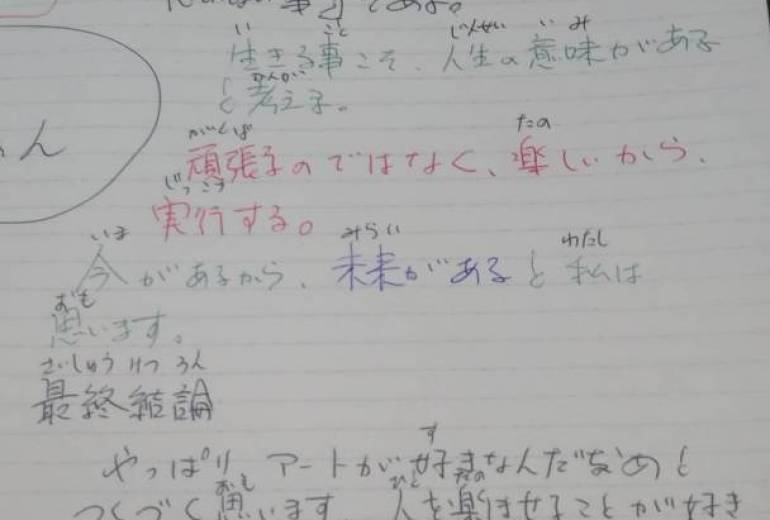 生きる事こそ、人生の意味がある
と考える。
頑張るのではなく、楽しいから、
実行する。
今があるから、未来があると私は
思います。
最終結論
やっぱり アートが好きなんだなあと
つくづく思います 人を楽しませることが好き